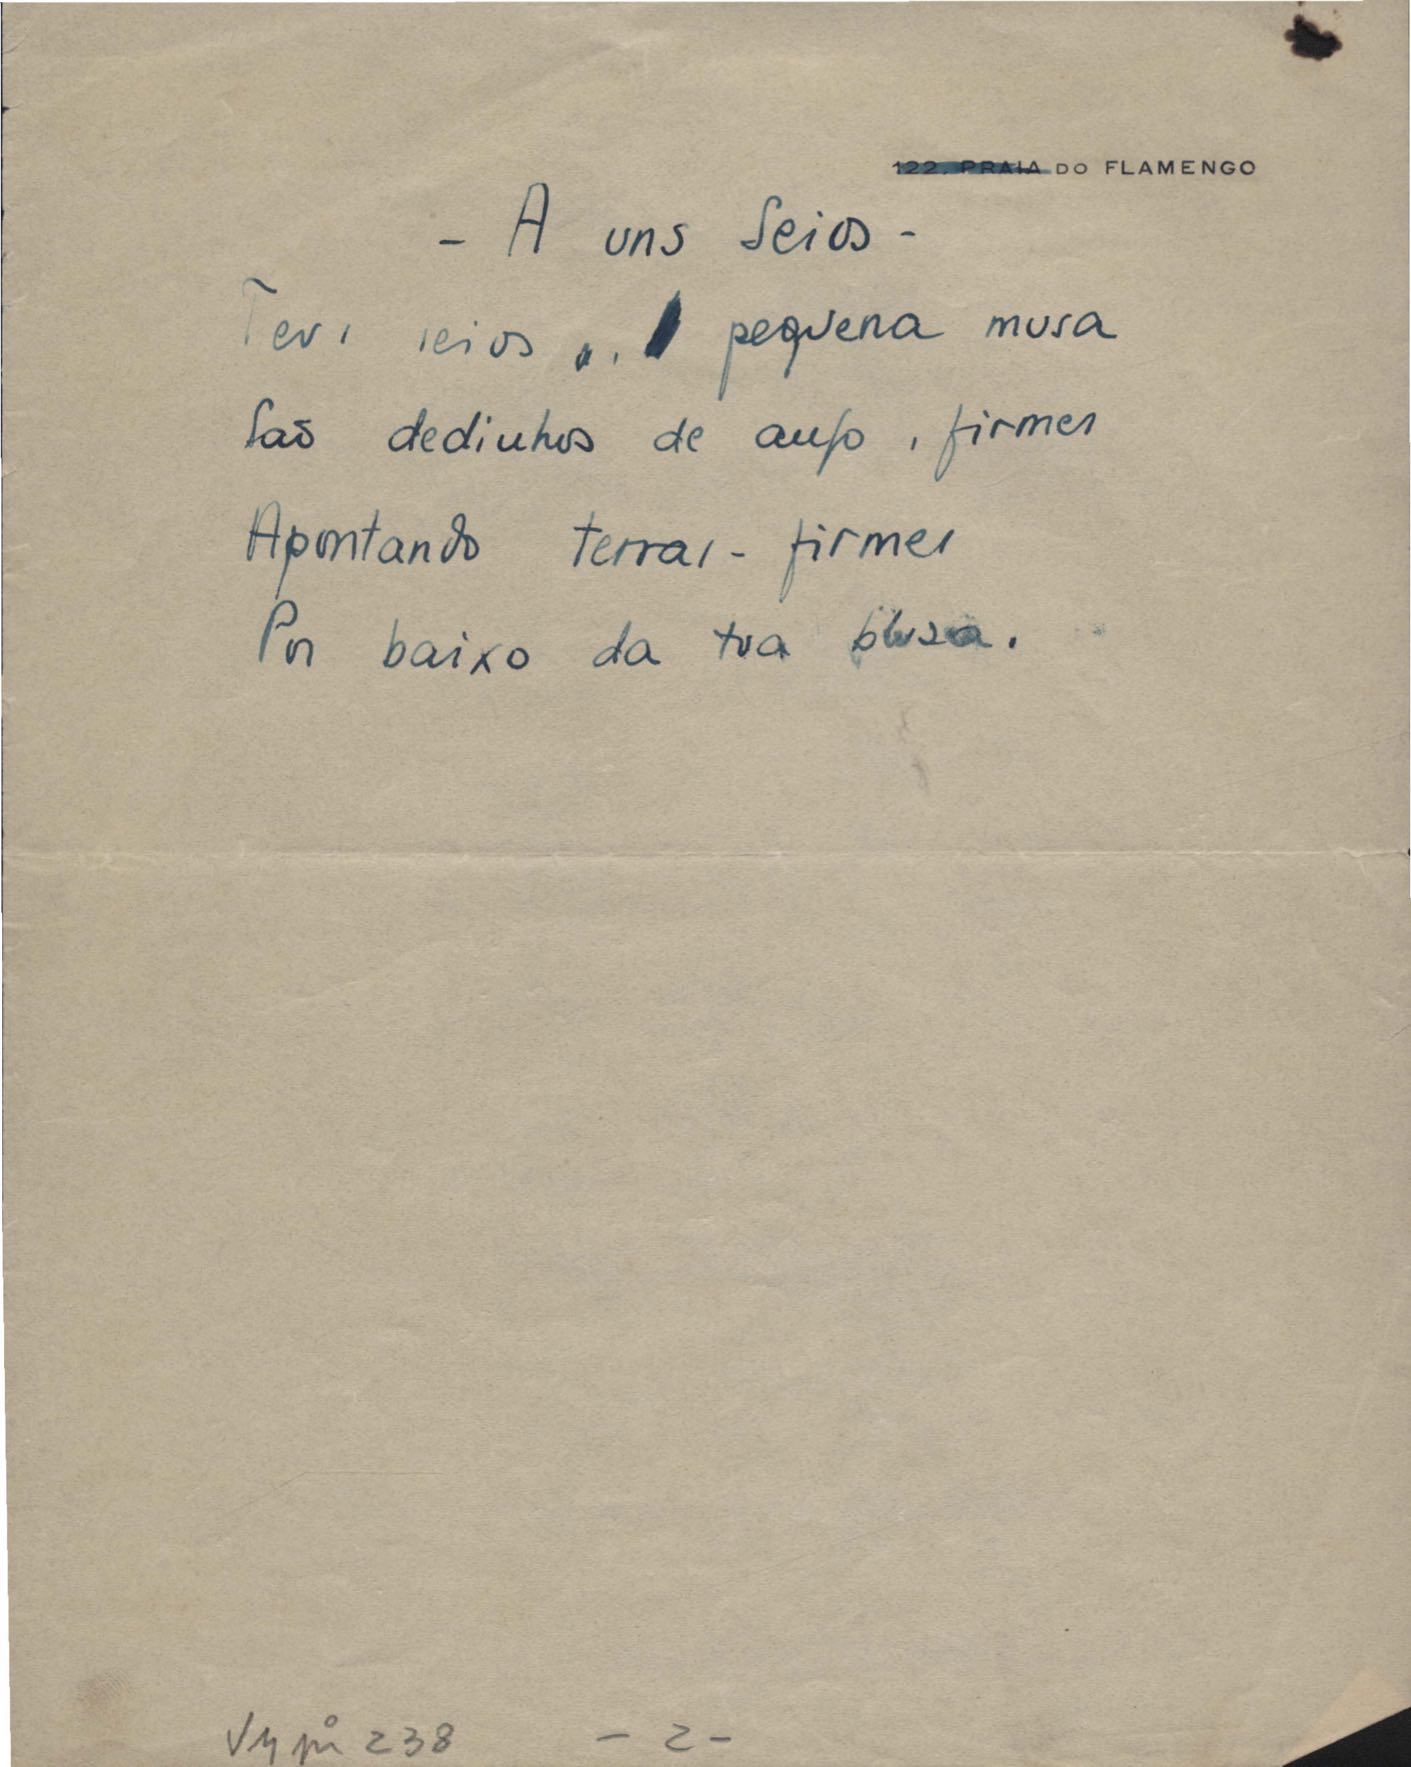 122. PRAIA DO FLAMENGO
- A uns Seios -
Teus seios... pequena musa
São dedinhos de anjo, firmes
Apontando terras-firmes
Por baixo da tua blusa.
238 - 2 -